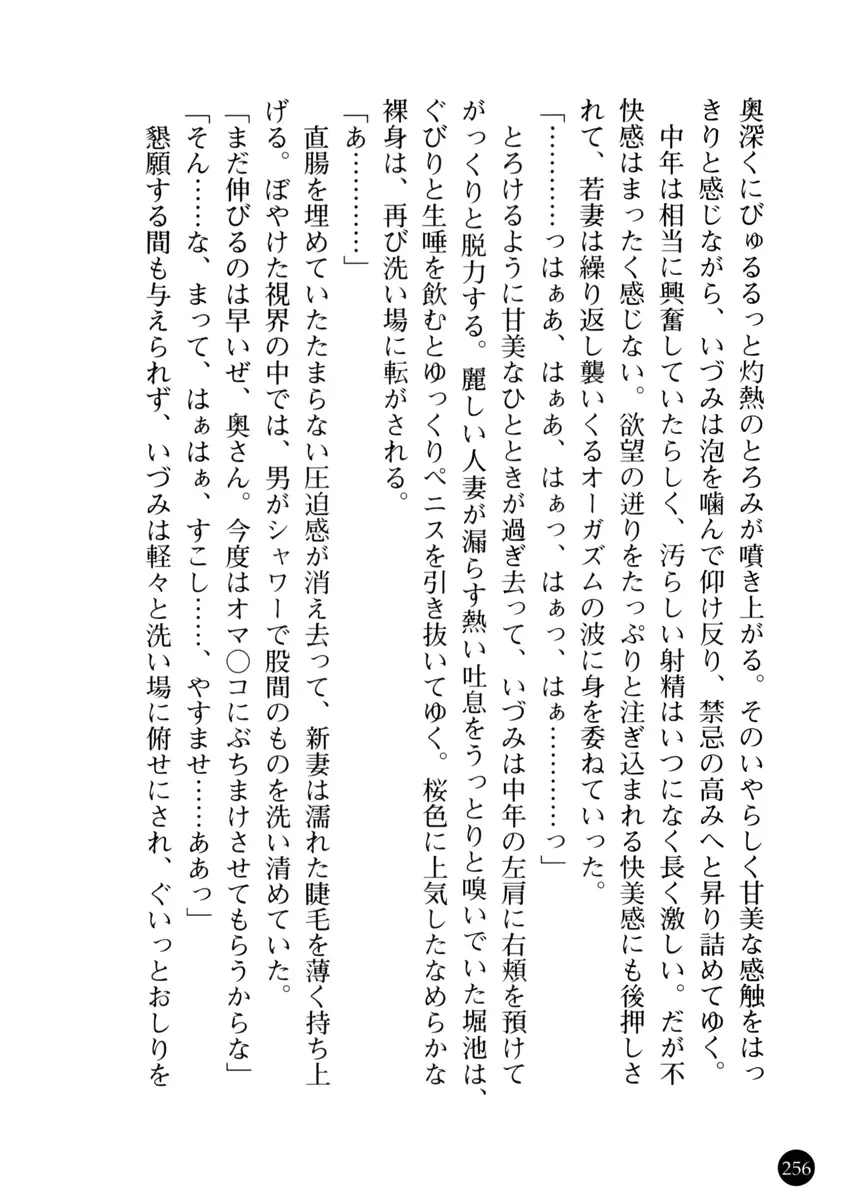 奥深くにびゅるるっと灼熱のとろみが噴き上がる。そのいやらしく甘美な感触をはっ
きりと感じながら、いづみは泡を噛んで仰け反り、禁忌の高みへと昇り詰めてゆく。
中年は相当に興奮していたらしく、汚らしい射精はいつになく長く激しい。だが不
快感はまったく感じない。欲望の迸りをたっぷりと注ぎ込まれる快美感にも後押しさ
れて、若妻は繰り返し襲いくるオーガズムの波に身を委ねていった。
「…………っはぁあ、はぁあ、はぁっ、はぁっ、はぁ…………っ」
とろけるように甘美なひとときが過ぎ去って、いづみは中年の左肩に右頬を預けて
がっくりと脱力する。麗しい人妻が漏らす熱い吐息をうっとりと嗅いでいた堀池は、
ぐびりと生唾を飲むとゆっくりペニスを引き抜いてゆく。桜色に上気したなめらかな
裸身は、再び洗い場に転がされる。
「あ…………」
直腸を埋めていたたまらない圧迫感が消え去って、新妻は濡れた睫毛を薄く持ち上
げる。ぼやけた視界の中では、男がシャワーで股間のものを洗い清めていた。
「まだ伸びるのは早いぜ、奥さん。今度はオマ○コにぶちまけさせてもらうからな」
「そん……な、まって、はぁはぁ、すこし……、やすませ……ああっ」
懇願する間も与えられず、いづみは軽々と洗い場に俯せにされ、ぐいっとおしりを
256